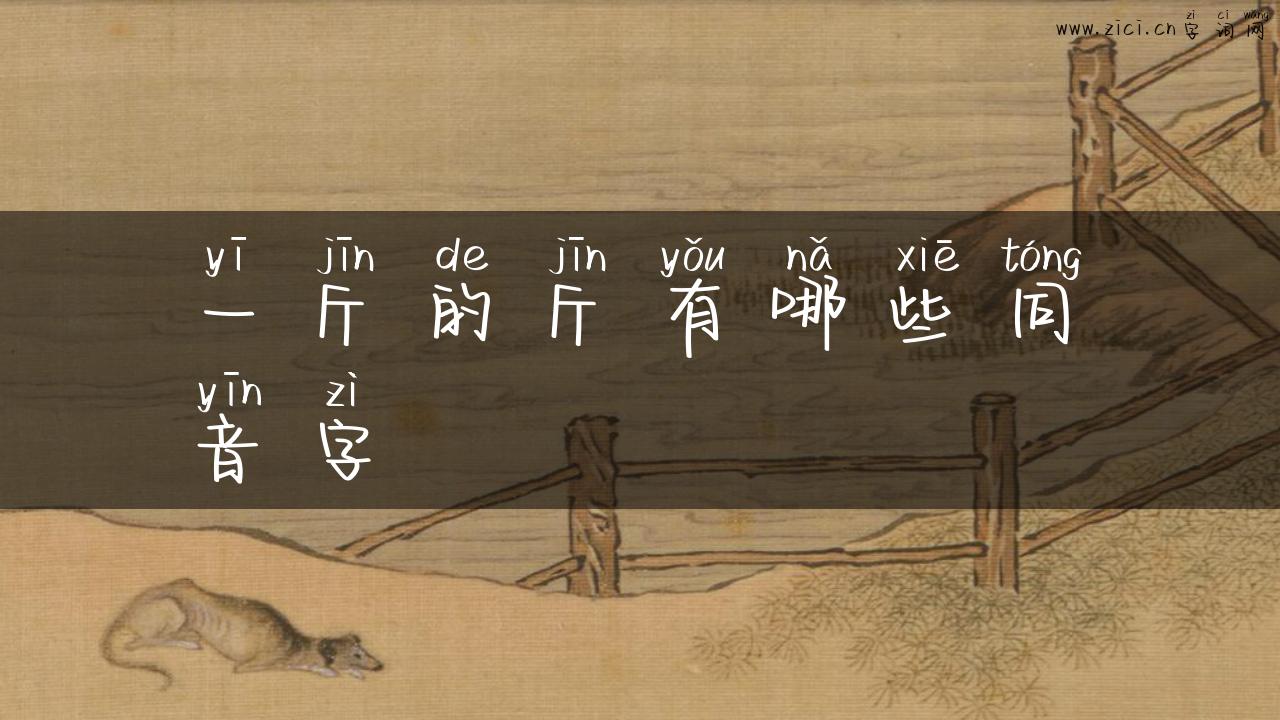 zì cí wǎng
www.zici.cn 字词网
yī jīn de jīn yǒu nǎ xiē tóng
一斤的斤有哪些同
yīn zì
音字